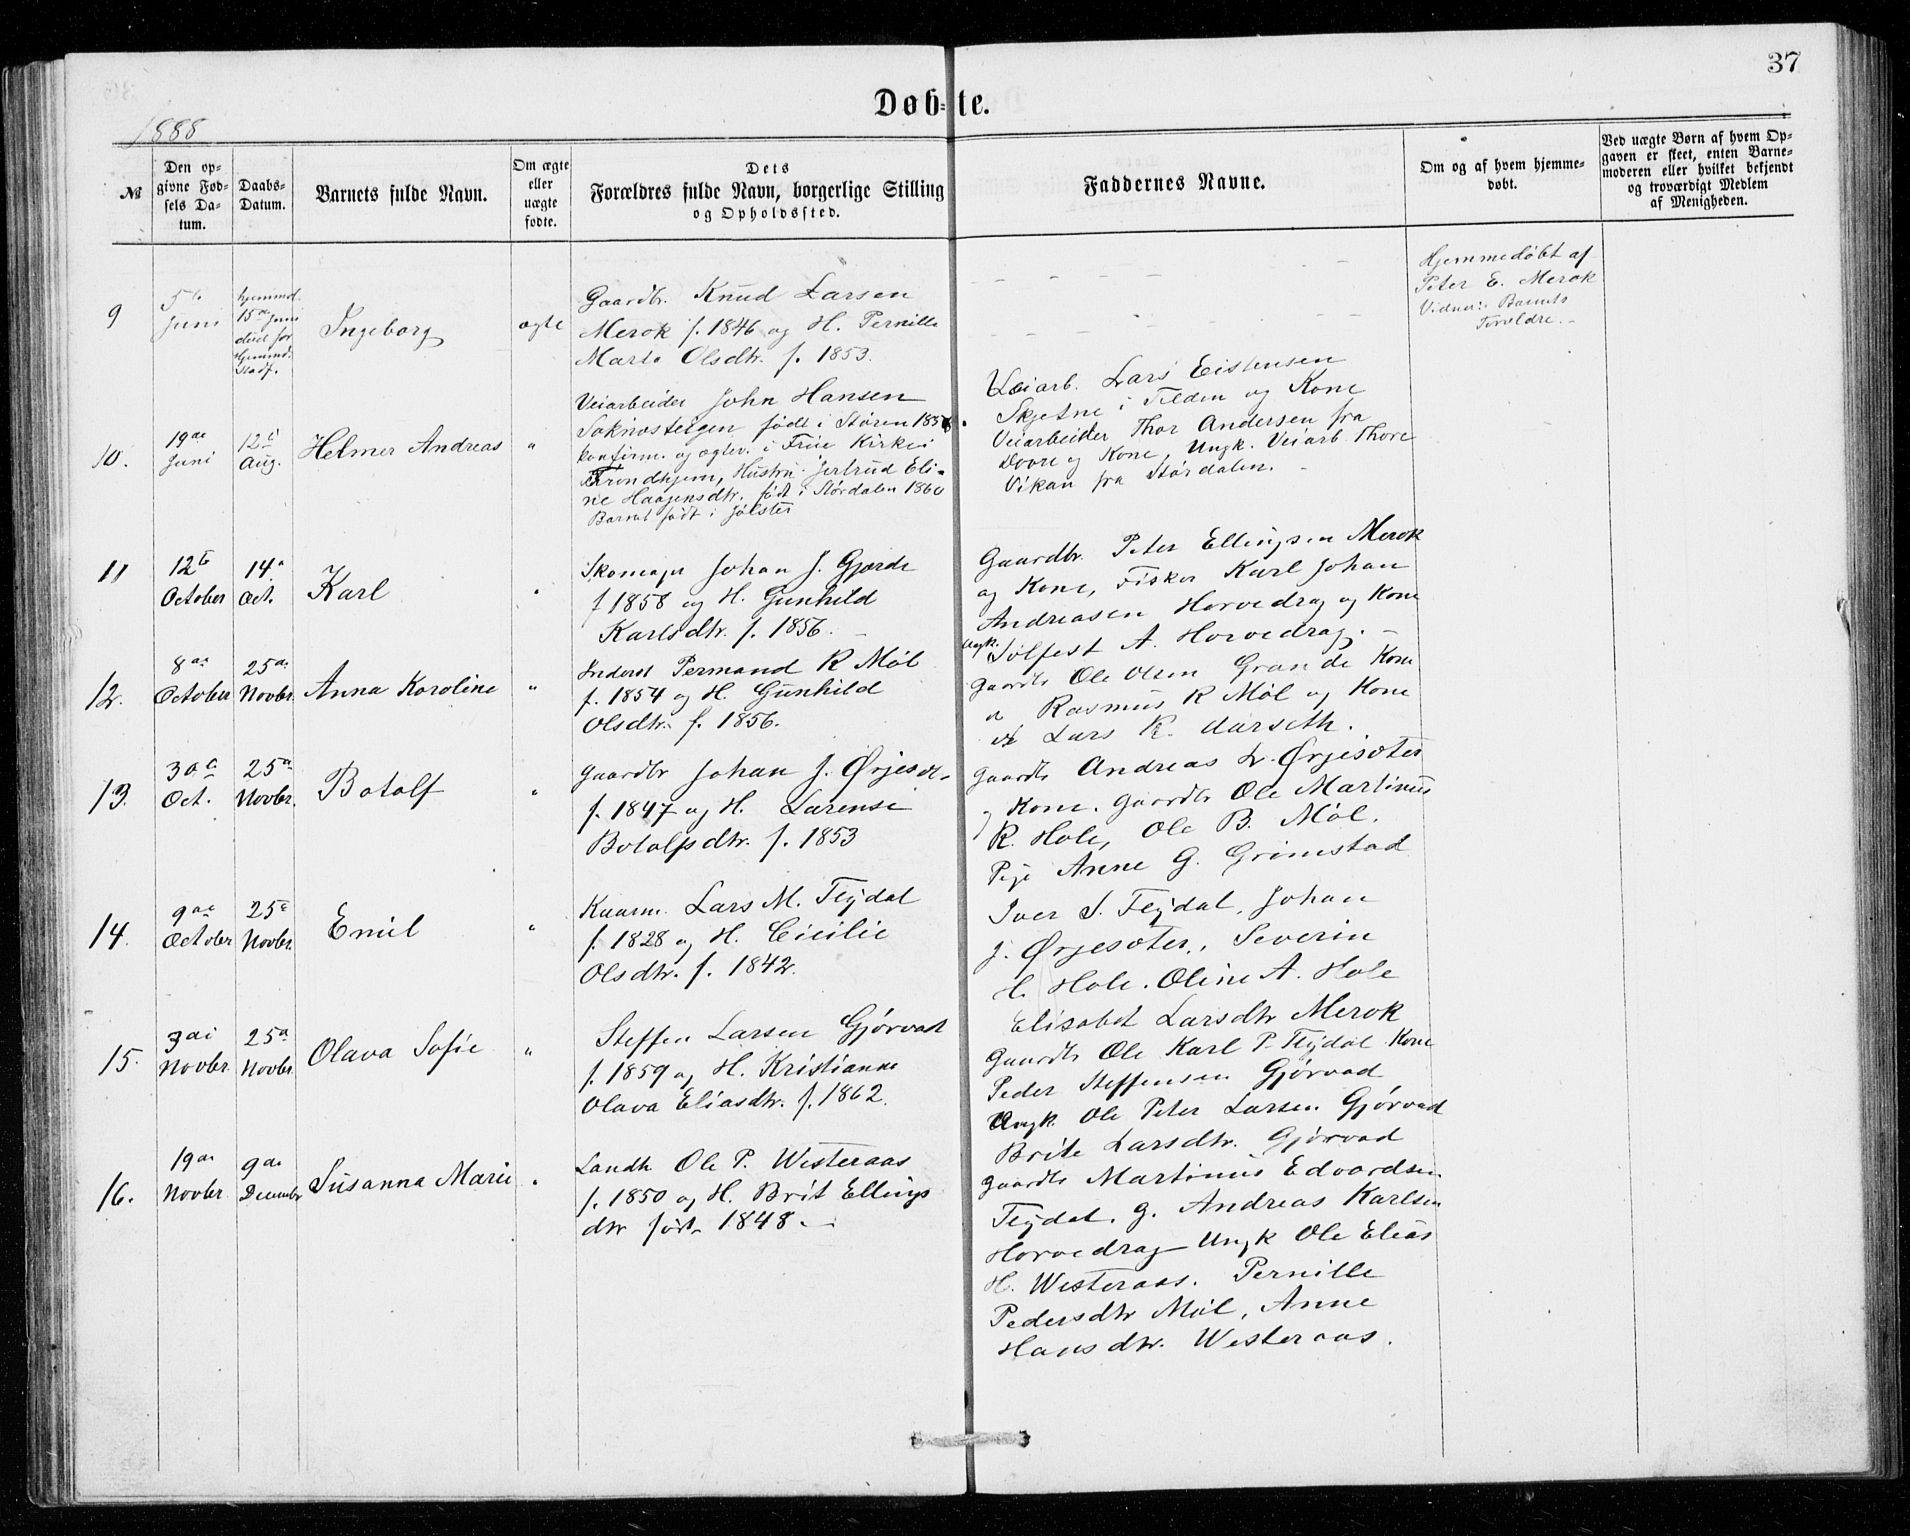 37
Døb-te.
1888
№
Den op-
givne Fød-
sels Da-
tum.
Daabs-
Datum.
Barnets fulde Navn.
Om ægte
eller
uægte
fødte.
Dets
Forældres fulde Navn, borgerlige Stilling
og Opholdssted.
Faddernes Navne.
Om og af hvem hjemme-
døbt.
Ved uægte Børn af hvem Op-
gaven er skeet, enten Barne-
moderen eller hvilket bekjendt
og troværdigt Medlem
af Menigheden.
9
5te
Juni
hjemmd.
15de Juni
død før
Hjemmd.
Stadf.
Ingeborg
ægte
Gaardbr. Knud Larsen
Merok f. 1846 og H. Pernille
Marta Olsdtr. f. 1853.
Hjemmedøbt af
Peter E. Merok
Vidner: Barnets
Forældre.
10.
19de
Juni
12te
Aug.
Helmer Andreas
"
Veiarbeider John Hansen
Soknesteigen født i Støren
konfirm. og ægtev. i Frue Kirke i
Trondhjem, Hustru Gertrud Eli-
ne Haagensdtr. født i Størdalen 1860
Barnet født i Jølster
Veiarb. Lars Eistensen
Skjetne i Tilden og Kone
Veiarbeider Thor Andersen fra
Dovre og Kone, Ungk. Veiarb. Thore
Vikan fra Størdalen.
11
12te
October
14de
Oct.
Karl
"
Skomager Johan J. Gjørde
f 1858 og H. Gunhild
Karlsdtr. f. 1856.
Gaardbr. Peter Ellingsen Merok
og Kone, Fisker Karl Johan
Andreasen Horvedrag og Kone
Ungk. Solfest A. Horvedrag.
12.
8de
October
25de
Novbr.
Anna Karoline
"
Inderst Permand R Møl
f. 1854 og H. Gunhild
Olsdtr. f. 1856.
Gaardb Ole Olsen Grande Kone
Rasmus R Møl og Kone
Lars R. Aarseth.
13.
30te
Oct.
25de
Novbr.
Botolf
"
Gaardbr Johan J. Ørjesæt.
f. 1847 og H. Larensé
Botolfsdtr. f. 1853
Gaardb Andreas L. Ørjesæter
og Kone. Gaardb Ole Martinus
R. Hole, Ole B. Møl.
Pige Anne G. Grimstad
14.
9de
October
25de
Novbr.
Emil
"
Kaarm. Lars M. Flydal
f. 1828 og H. Cicilie
Olsdtr. f. 1842.
Iver S. Flydal, Johan
J. Ørjesæter, Severin
Hole. Oline A. Hole
Elisabet Larsdtr Merok
15.
3die
Novbr
25de
Novbr.
Olava Sofie
"
Steffen Larsen Gjørvad
f. 1859 og H. Kristianna
Olava Eliasdtr. f. 1862.
Gaardb Ole Karl P. Flydal Kone
Peder Steffensen Gjørvad
Ungk. Ole Peter Larsen Gjørvad
Brite Larsdtr. Gjørvad
16.
19de
Novbr
9de
December
Susanna Marie
"
Landh. Ole P. Westeraas
f. 1850 og H. Brit Ellings
dtr født 1848.
Gaardb Martinus Edvardsen
Flydal. G. Andreas Karlsen
Horvedrag Ungk Ole Elias
H. Westeraas. Pernille
Pedersdtr Møl, Anne
Hansdtr. Westeraas.